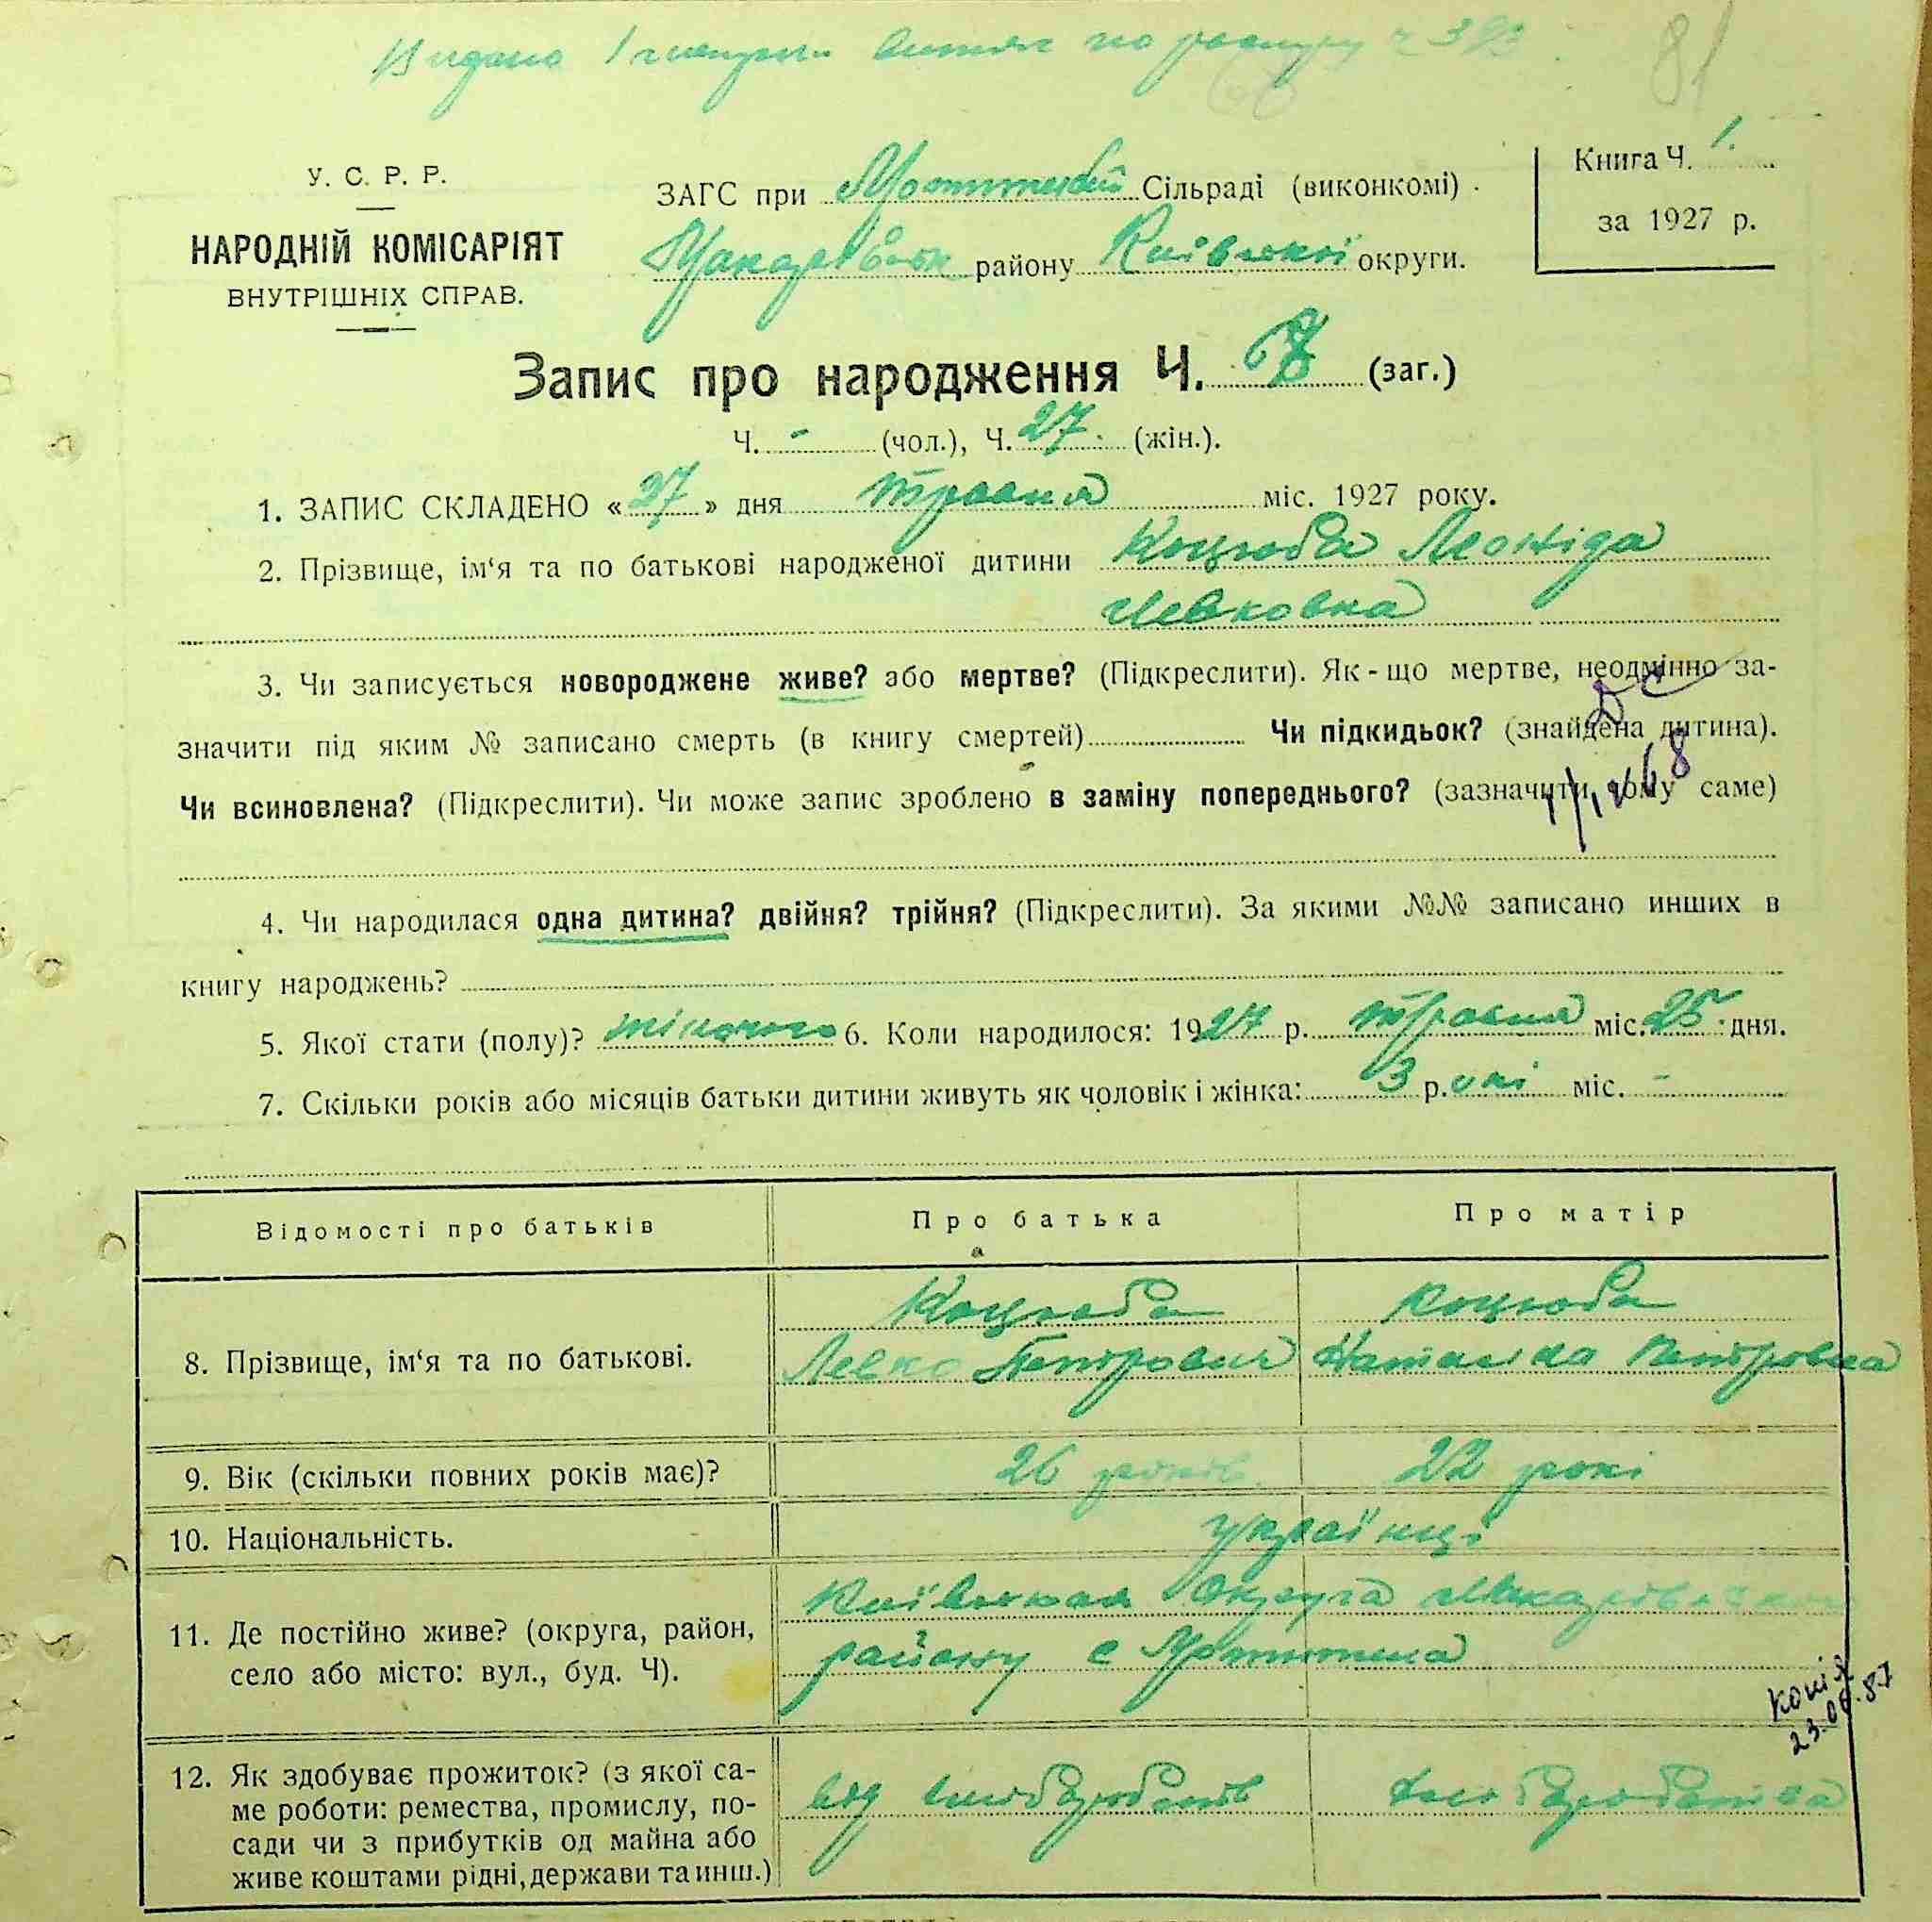 Видано
81
У. С. Р. Р.
НАРОДНІЙ КОМІСАРІЯТ
ВНУТРІШНІХ СПРАВ.
ЗАГС при Сільраді (виконкомі)
району Київської округи.
Книга Ч. 1.
за 1927 р.
Запис про народження Ч. (заг.)
Ч. - (чол.), Ч. 27 (жін.).
1. ЗАПИС СКЛАДЕНО «27» дня травня міс. 1927 року.
2. Прізвище, ім‘я та по батькові народженої дитини Коцюба Леоніда
Левковна
3. Чи записується новороджене живе? або мертве? (Підкреслити). Як-що мертве, неодмінно за-
значити під яким № записано смерть (в книгу смертей) Чи підкидьок? (знайдена дитина).
Чи всиновлена? (Підкреслити). Чи може запис зроблено в заміну попереднього? (зазначити, чому саме)
4. Чи народилася одна дитина? двійня? трійня? (Підкреслити). За якими №№ записано инших в
книгу народжень?
5. Якої стати (полу)? жіночого 6. Коли народилося: 1927 р. травня міс. 25 дня.
7. Скільки років або місяців батьки дитини живуть як чоловік і жінка: 3 р.оки міс. -
Відомості про батьків Про батька Про матір
8. Прізвище, ім‘я та по батькові.
Коцюба Коцюба
Левко Петрович Наталка Петровна
9. Вік (скільки повних років має)? 26 років 22 рокі
10. Національність. українці
11. Де постійно живе? (округа, район,
село або місто: вул., буд. Ч).
Київська округа Макарівського
району с
копія
23.06.87
12. Як здобуває прожиток? (з якої са-
ме роботи: ремества, промислу, по-
сади чи з прибутків од майна або
живе коштами рідні, держави та инш.)
від хлібороб